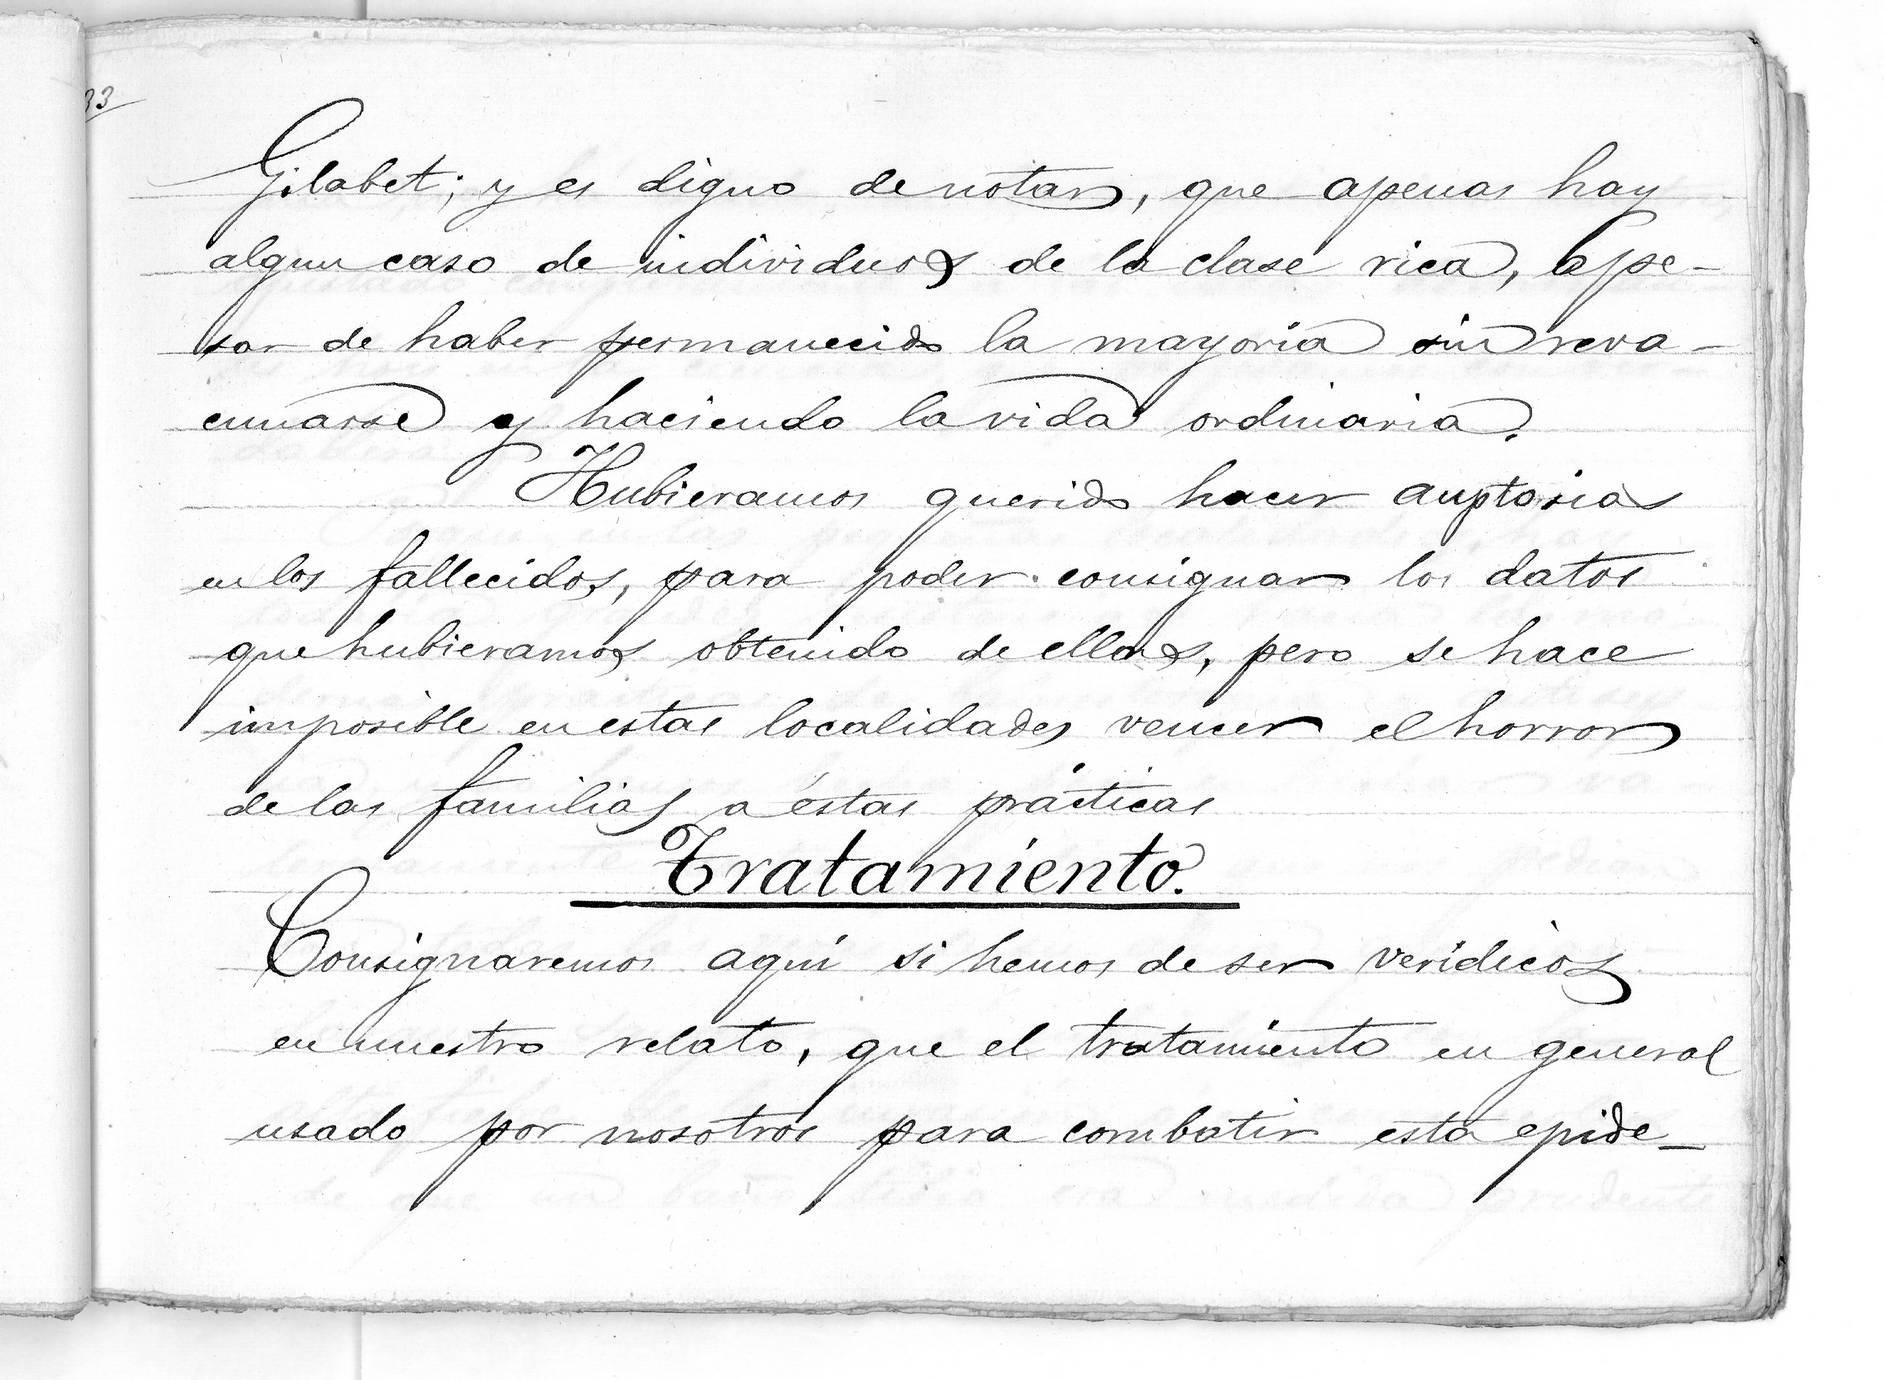 33
Gilabet; y es digno de notar, que apenas hay
algun caso de individuos de la clase rica, ape-
sar de haber permanecido la mayoria sin reva-
cunarse y haciendo la vida ordinaria.
Hubieramos querido hacer auptosias
en los fallecidos, para poder consignar los datos
que hubieramos obtenido de ellas, pero se hace
imposible en estas localidades vencer el horror
de las familias a éstas prácticas
Tratamiento.
Consignaremos aquí si hemos de ser verídicos
en nuestro relato, que el tratamiento en general
usado por nosotros para combatir esta epide-